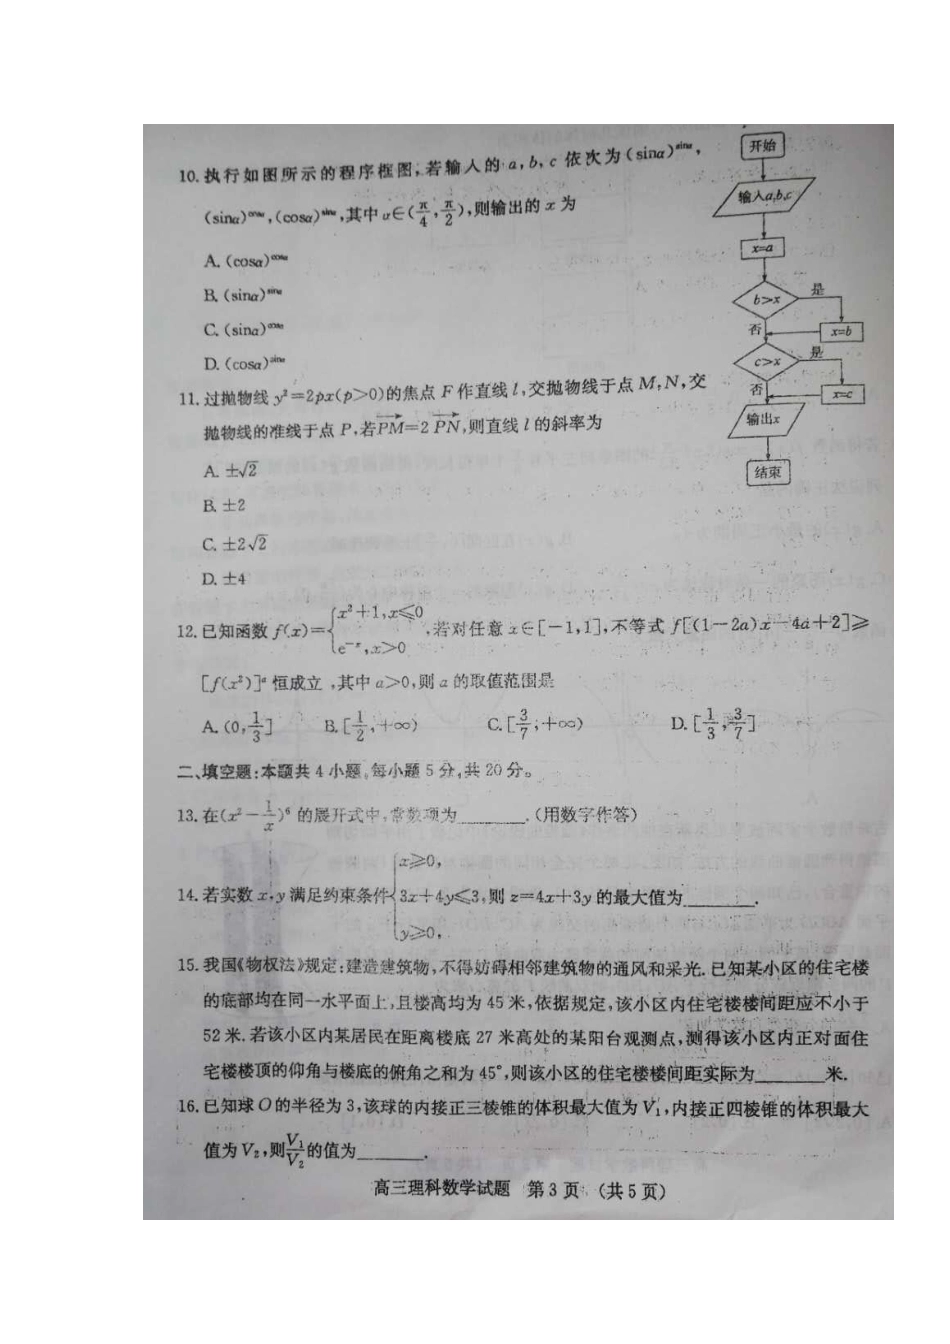 10. 执行如图所示的程序框图,若输入的 a,b,c 依次为(sinα)^sinα,
(sinα)^cosα,(cosα)^sinα,其中 α∈(π/4,π/2),则输出的 x 为
A. (cosα)^cosα
B. (sinα)^sinα
C. (sinα)^cosα
D. (cosα)^sinα
开始
输入a,b,c
x=a
b>x
是
否
x=b
c>x
是
否
x=c
输出x
结束
11. 过抛物线 y²=2px(p>0)的焦点 F 作直线 l,交抛物线于点 M,N,交
抛物线的准线于点 P,若PM=2PN,则直线 l 的斜率为
A. ±√2
B. ±2
C. ±2√2
D. ±4
12. 已知函数 f(x)={x²+1,x≤0 e^-x,x>0,若对任意 x∈[-1,1],不等式 f[(1-2a)x-4a+2]≥
[f(x²)]^a 恒成立,其中 a>0,则 a 的取值范围是
A. (0,1/3] B. [1/2,+∞) C. [3/7,+∞) D. [1/3,3/7]
二、填空题:本题共 4 小题,每小题 5 分,共 20 分。
13. 在(x²-1/x)⁶ 的展开式中,常数项为______.(用数字作答)
14. 若实数 x,y 满足约束条件{x≥0, 3x+4y≤3, y≥0,则 z=4x+3y 的最大值为______.
15. 我国《物权法》规定:建造建筑物,不得妨碍相邻建筑物的通风和采光.已知某小区的住宅楼
的底部均在同一水平面上,且楼高均为 45 米,依据规定,该小区内住宅楼楼间距应不小于
52 米.若该小区内某居民在距离楼底 27 米高处的某阳台观测点,测得该小区内正对面住
宅楼楼顶的仰角与楼底的俯角之和为 45°,则该小区的住宅楼楼间距实际为______米.
16. 已知球 O 的半径为 3,该球的内接正三棱锥的体积最大值为 V₁,内接正四棱锥的体积最大
值为 V₂,则V₁/V₂的值为______.
高三理科数学试题 第 3 页 (共 5 页)